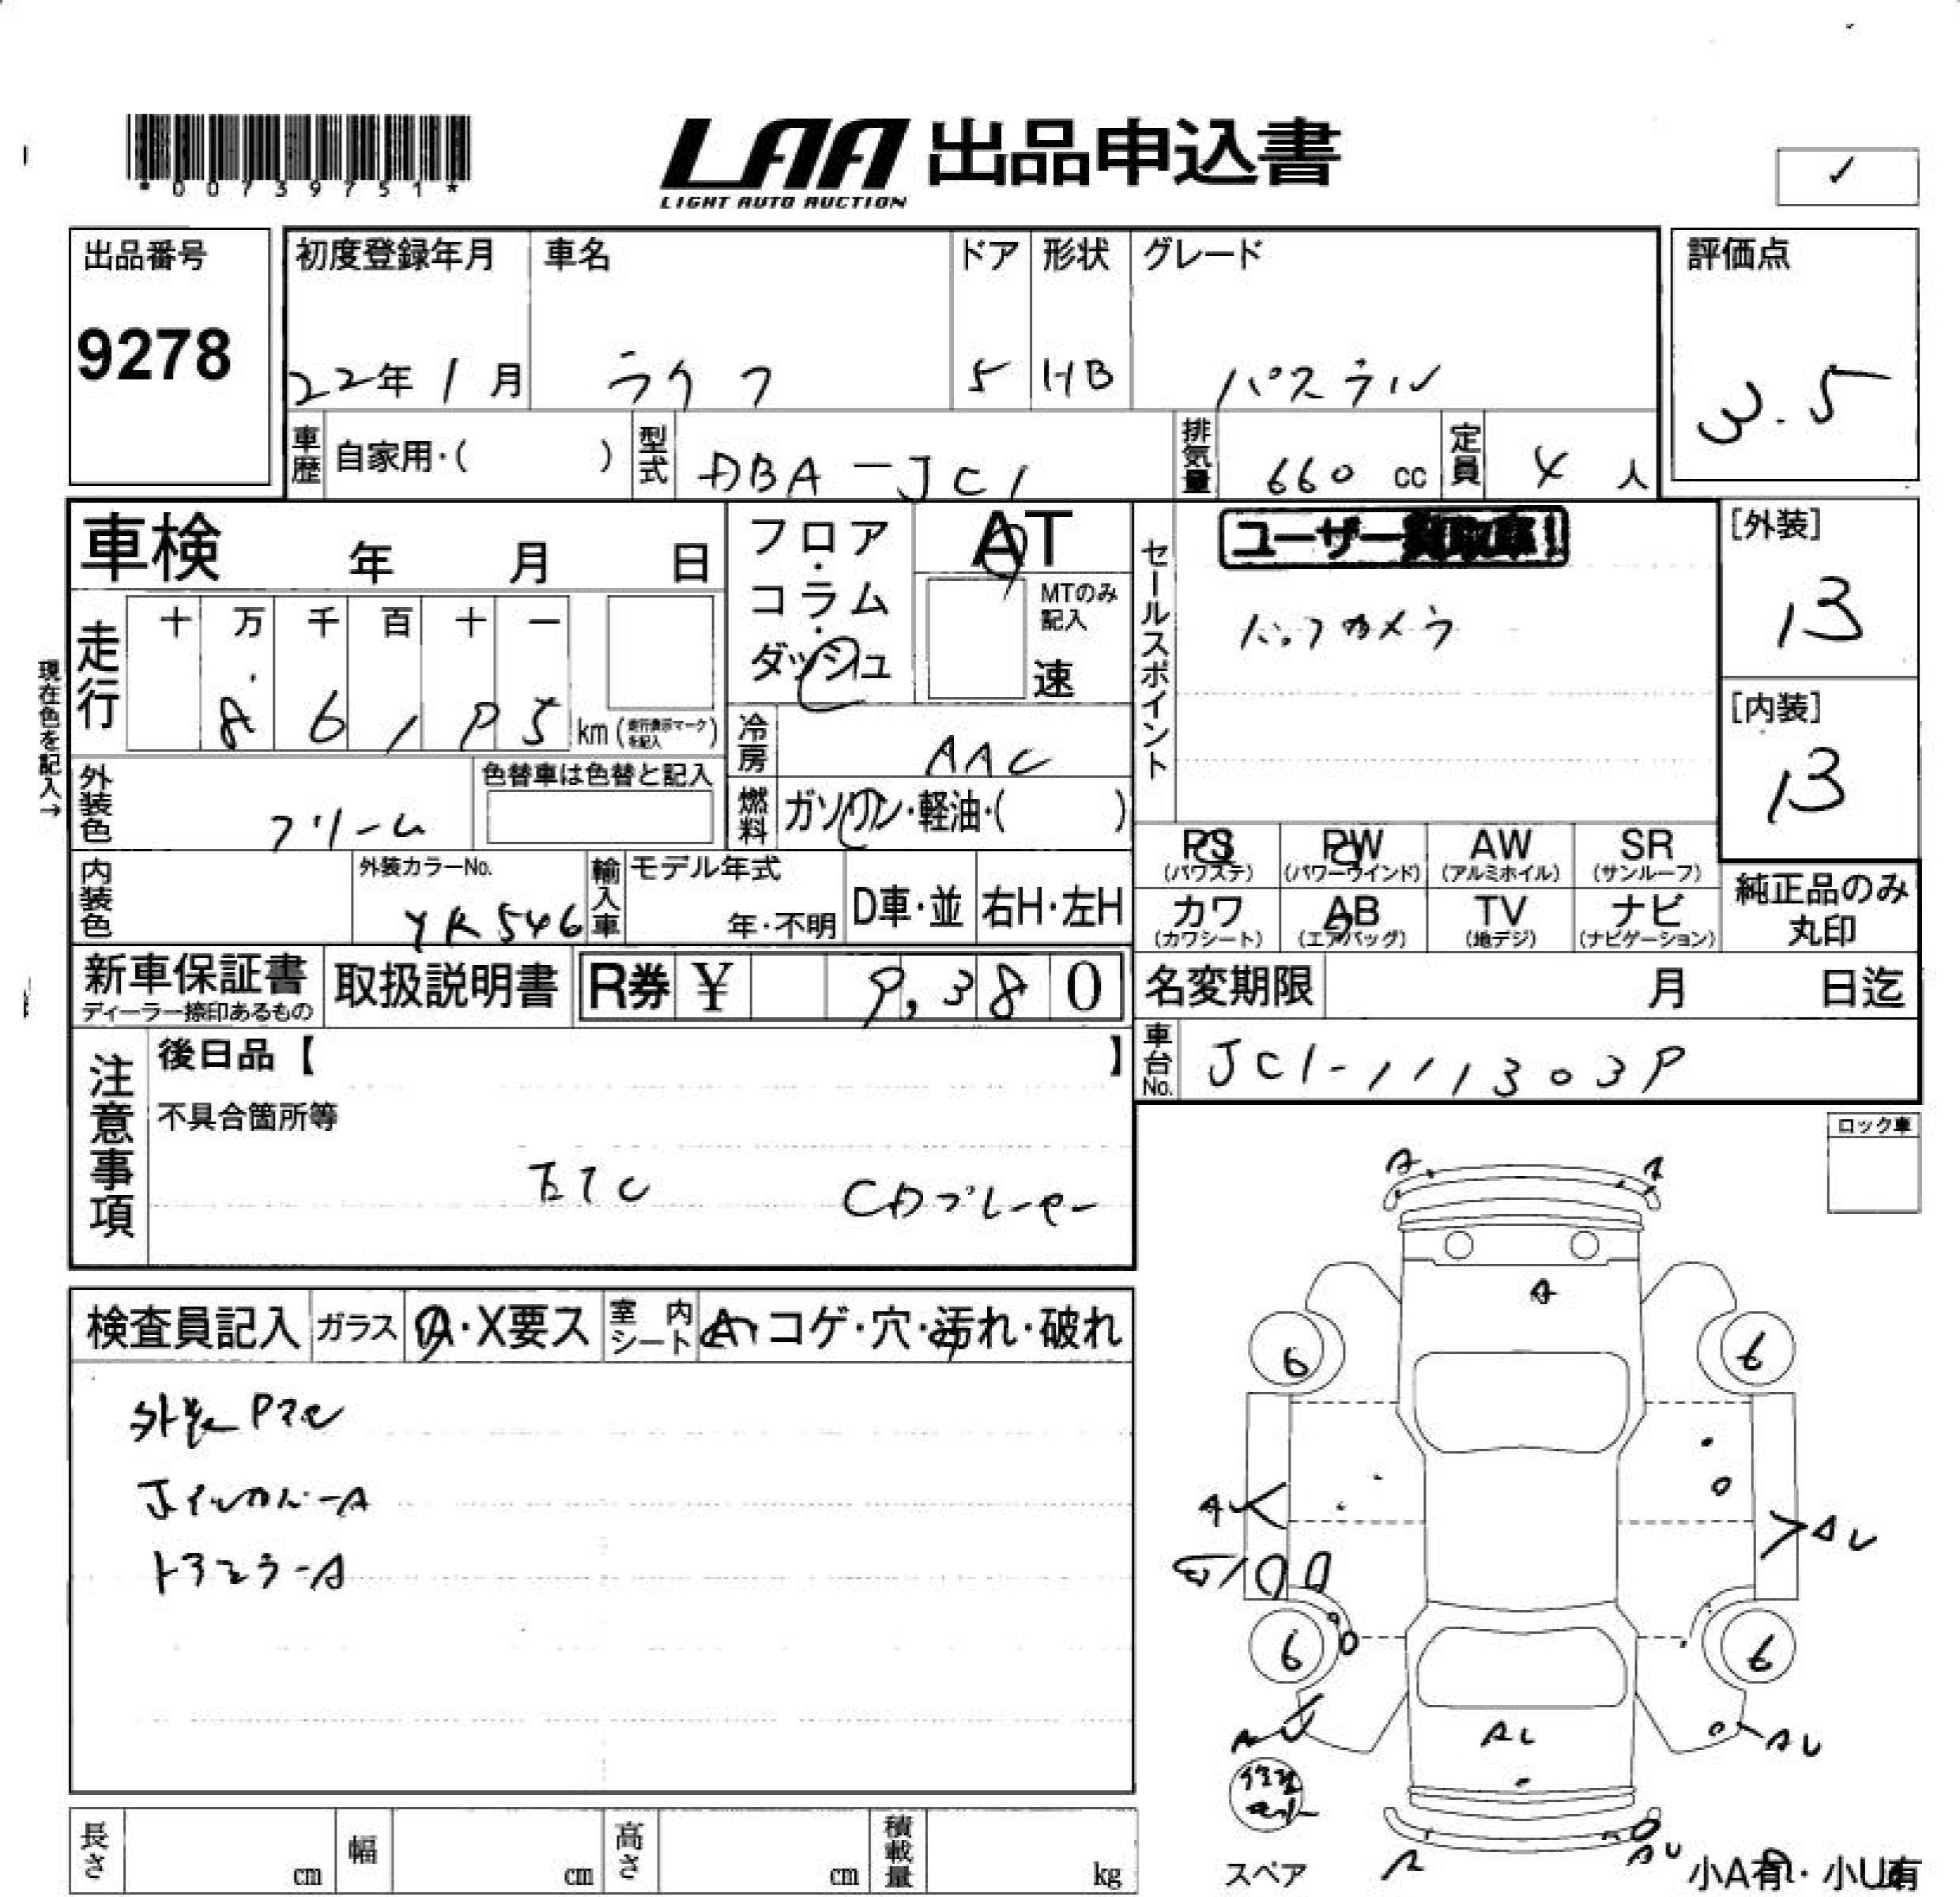 *00739751*
LAA 出品申込書
LIGHT AUTO AUCTION
出品番号
9278
初度登録年月
22年1月
車名
ライフ
ドア
5
形状
HB
グレード
パステル
評価点
3.5
車歴
自家用・( )
型式
DBA-JC1
排気量
660 cc
定員
4 人
車検 年 月 日
フロア・コラム・ダッシュ
AT
MTのみ記入
速
セールスポイント
ユーザー買取車!
バックカメラ
[外装]
13
[内装]
13
現在色を記入→
走行
十 万 千 百 十 一
km
冷房
AAC
外装色
クリーム
色替車は色替と記入
燃料
ガソリン・軽油・( )
PS
(パワステ)
PW
(パワーウインド)
AW
(アルミホイル)
SR
(サンルーフ)
内装色
外装カラーNo.
YR546
輸入車
モデル年式
年・不明
D車・並
右H・左H
カワ
(カワシート)
AB
(エアバッグ)
TV
(地デジ)
ナビ
(ナビゲーション)
純正品のみ
丸印
新車保証書
ディーラー捺印あるもの
取扱説明書
R券 ¥ 9,380
名変期限 月 日迄
車台No.
注意事項
後日品【 】
不具合箇所等
ETC CDプレーヤー
ロック車
検査員記入
ガラス
A・X要ス
室内シート
コゲ・穴・汚れ・破れ
トランクフロアーA
A
A
A
6
6
A
AU
6
6
AU
AU
A
AU
スペア
小A有・小U有
長さ cm
幅 cm
高さ cm
積載量 kg